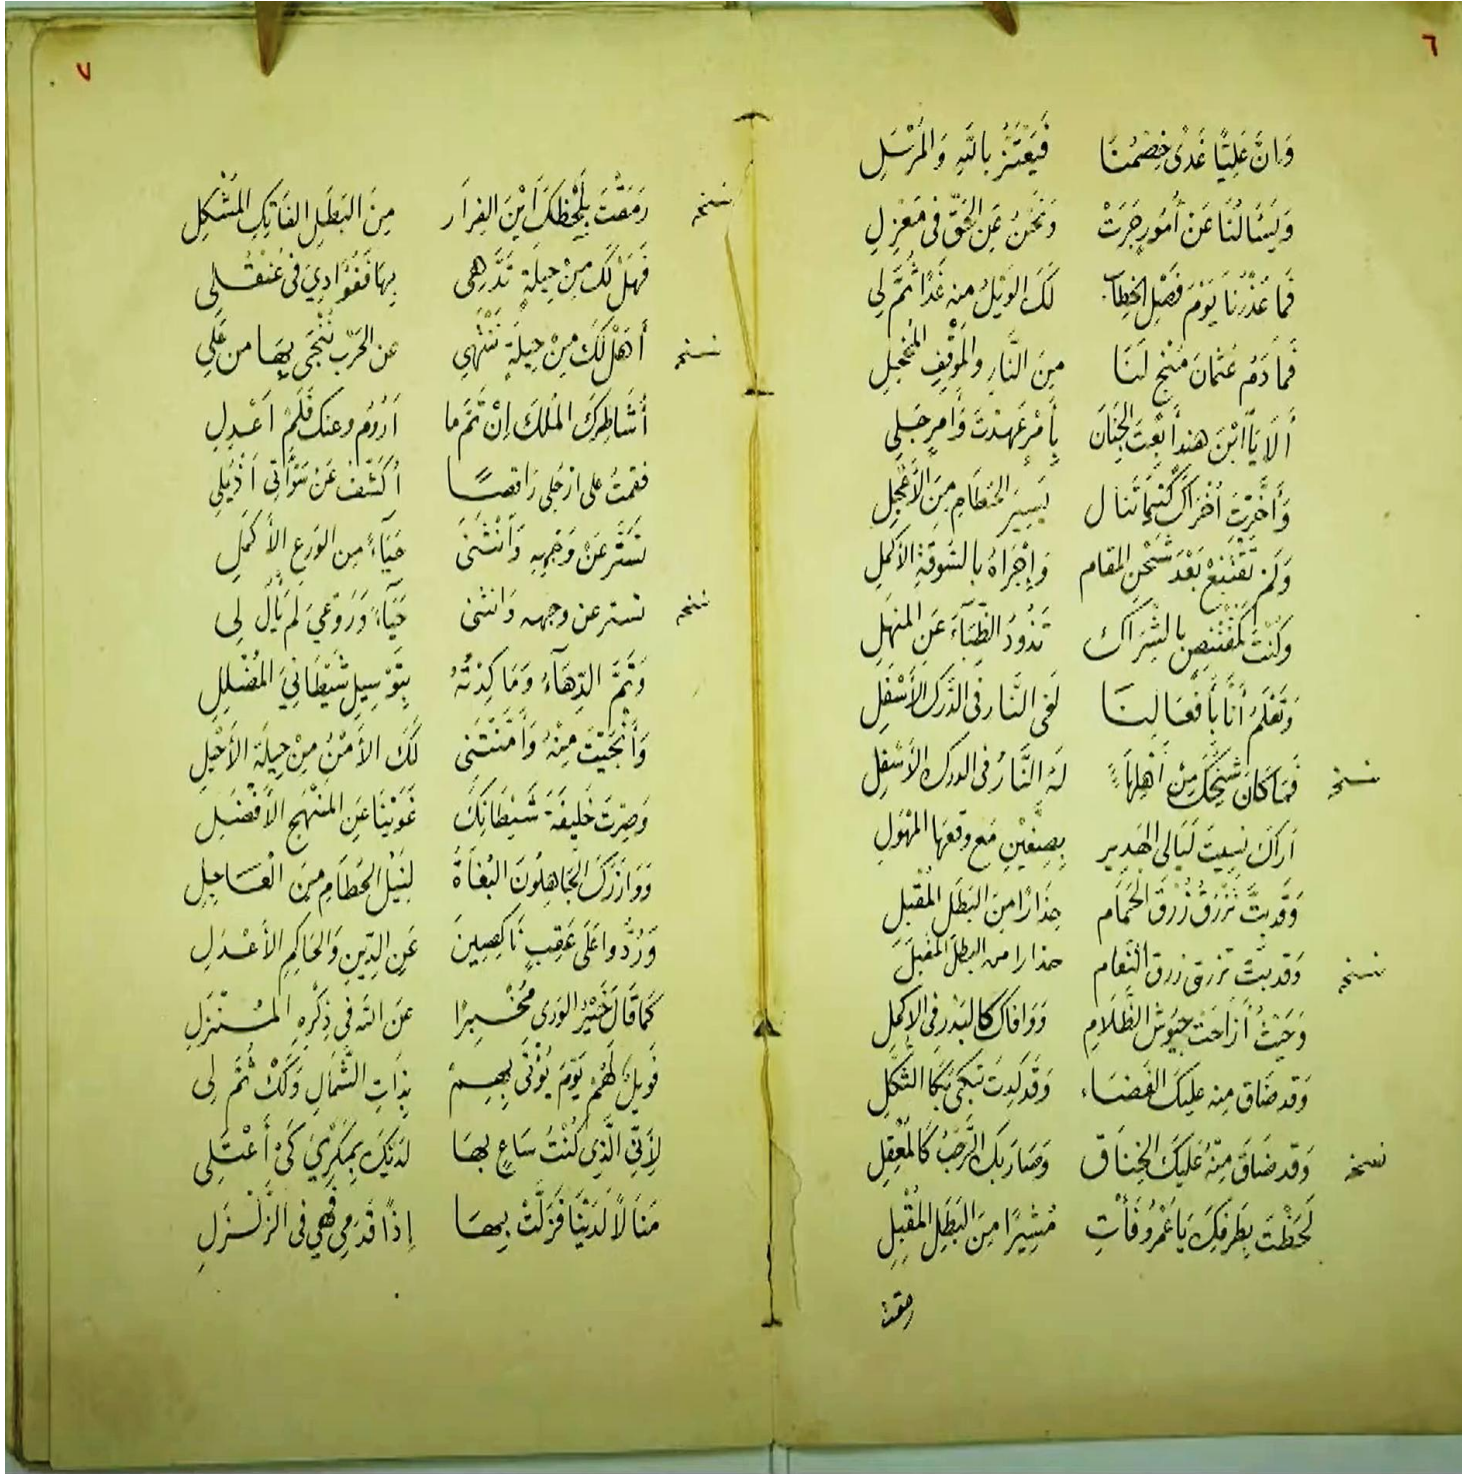 ٦
وَانَّ عَلِيًّا غَدًى خِصْمُنَا فَيَعْتَزُّ بالله وَالمُرْسَلِ
وَيَسْأَلُنَا عَنْ أُمُورٍ جَرَتْ وَنَحْنُ عَنِ الحَقّ فى مَعْزِلِ
فَمَا عَذْرُنَا يَوْمَ فَصْلِ الخِطاب لَكَ الوَيْلُ منه غَدًا ثُمَّ لِى
فَمَا دَمُ عُثْمَانَ مُنْجٍ لَنَا مِنَ النَّارِ والمَوْقِفِ المُخْجِلِ
أَلَا يَا ابْنَ هندٍ أَبِعْتَ الجِنَانَ بِأَمْرٍ عَهِدْتَ وَأَمرٍ جَلِى
وَأَخَّرْتَ أُخْرَاكَ كَيْمَا تَنَال يَسِيرَ الحُطَامِ مِنَ الأَعْجِلِ
وَلَمْ تَقْتَنِعْ بَعْدَ شَحْنِ المقام وَإِجْرَاهُ بالسُوقَةِ الأَكْمَلِ
وَكُنْتَ كَمُقْتَنِصٍ بالشِّرَاك تَذُودُ الظِّبَآءَ عَنِ المَنهَلِ
وَتَعْلَمُ أَنَّا بَأَفْعَالِنَا لَفِى النَّار فى الدَّرَكِ الأَسْفَلِ
نسخه فَمَا كَانَ شَيْخُكَ مِنْ أَهْلِهَا لَهُ النَّارُ فى الدرك الأَسْفَلِ
اَرَاكَ نَسِيتَ لَيَالِى الهَدِير بِصِفِّيْنِ مَع وقعها المُهْوِلِ
وَقَد بتَّ تَزْرَقُ زُرْقَ الحَمَام حِذَارًا مِنَ البَطَلِ المُقْبِلِ
نسخه وَقد بتَّ تزرق زرق النَّعام حذارا من البطل المقبل
وَحَيْثُ أَزَاحَتْ جيُوش الظَّلَامِ وَوَافاك كالبَدْرِ فى الإكملِ
وَقد ضَاقَ مِنه عليكَ الفَضَاء وَقَد كِدتَ تَبْكى بُكَا الثُكَّلِ
نسخه وَقد ضَاقَ مِنْهُ عَلَيْكَ الخِنَاق وَصَارَ بكَ الرَّحْبُ كَالمَعْقِلِ
لَحَظْتَ بِطَرفِكَ يَا عَمْرُو فَأْتِ مُشِيرًا مِنَ البَطَلِ المُقْبِلِ
رمقت
٧
نسخه رَمَقْتَ بِلَحْظِكَ أَيْنَ الفِرَار مِنَ البَطَلِ الفَاتِكِ المُشْكِلِ
فَهَلْ لَكَ مِنْ حِيلَةٍ تَدَّهِى بِهَا فَفُؤَادِيَ فى عُنْقُلِى
نسخه أَهَلْ لَكَ مِنْ حِيلَةٍ نَنْتَهِى عن الحَرْب نُنْجَى بِهَا من عَلِى
أُشَاطِرَكَ المُلكَ اِنْ تَمَّ ما اَرُومُ وعنكَ فَلَمْ اَعْدِلِ
فقمتُ على ارْجُلِى رَاقصًا أُكَشِّفُ عَنْ سَوْأَتِى اَذْيُلِى
تَسَتَّرَ عَنْ وَجْهِهِ وَاَنْثَنَى حَيَآءً مِن الوَرَعِ الأَكْمَلِ
نسخه تستر عن وجهه وَانثنى حَيَآءً وَرَوْعِيَ لَمْ يَأْلُ لِى
وَتَمَّ الدِّهَآءُ وَمَا كِدْتُهُ بِتَوْسِيلِ شَيْطَانِيَ المُضْلِلِ
وَأَنْجَيْتَ مِنْهُ وَأَمَّنْتَنى لَكَ الأَمْنُ مِنْ حِيلَةِ الأَحْيَلِ
وَصِرْتَ خَلِيفَةَ شَيْطَانِكَ غَوَيْنَا عَنِ المَنْهَجِ الأَفْضَلِ
وَوَازَرَكَ الجَاهِلُونَ البُغَاةُ لِنَيْلِ الحُطَامِ مِنَ الْعَاجِلِ
وَرُدُّوا عَلَى عَقِبٍ نَاكِصِينَ عَنِ الدِّينِ وَالحَاكِمِ الأَعْدَلِ
كَمَا قَالَ خَيْرُ الوَرَى مُخْبِرًا عَنَ الله فى ذِكْرِهِ المُنْزَلِ
فَوَيلٌ لَهُمْ يَوْمَ يُؤْتَى بِهِمْ بِذَاتِ الشَّمَالِ وَلَكْ ثُمَّ لِى
لِأَنِّى الَّذِى كُنْتُ سَاعٍ بهَا لَدَيْكَ بِمَكْرِيَ كَىْ أَعْتَلِى
مَنَالًا لَدَيْنَا فَزَلَّتْ بِهَا إِذًا قَدَمِى فَهْيَ فى الزَّلْزَلِ